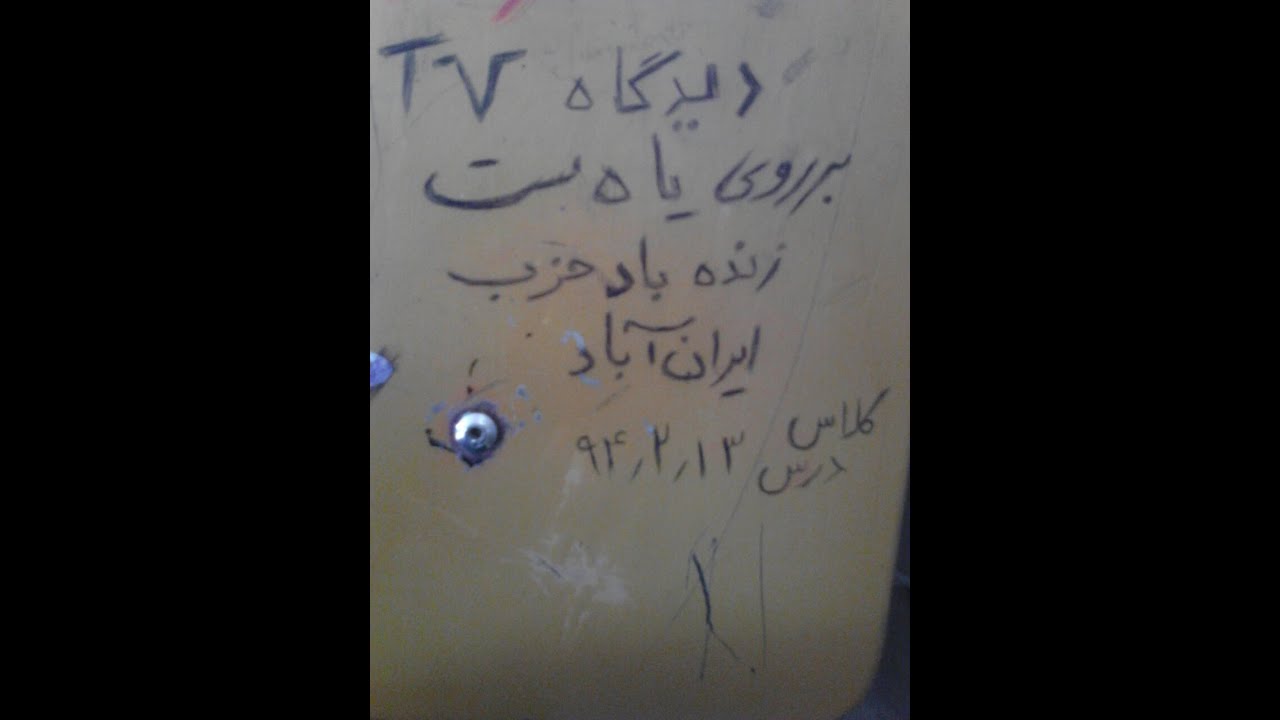 دیدگاه TV
برروی یاه ست
زنده باد حزب
ایران آباد
کلاس
درس ۹۴٫۲٫۱۳